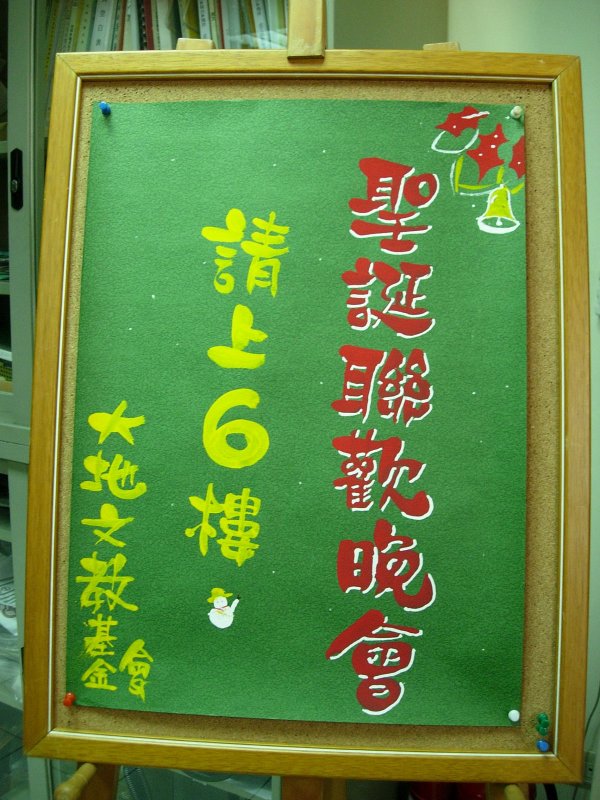 聖誕聯歡晚會
請上6樓
大地文教基金會